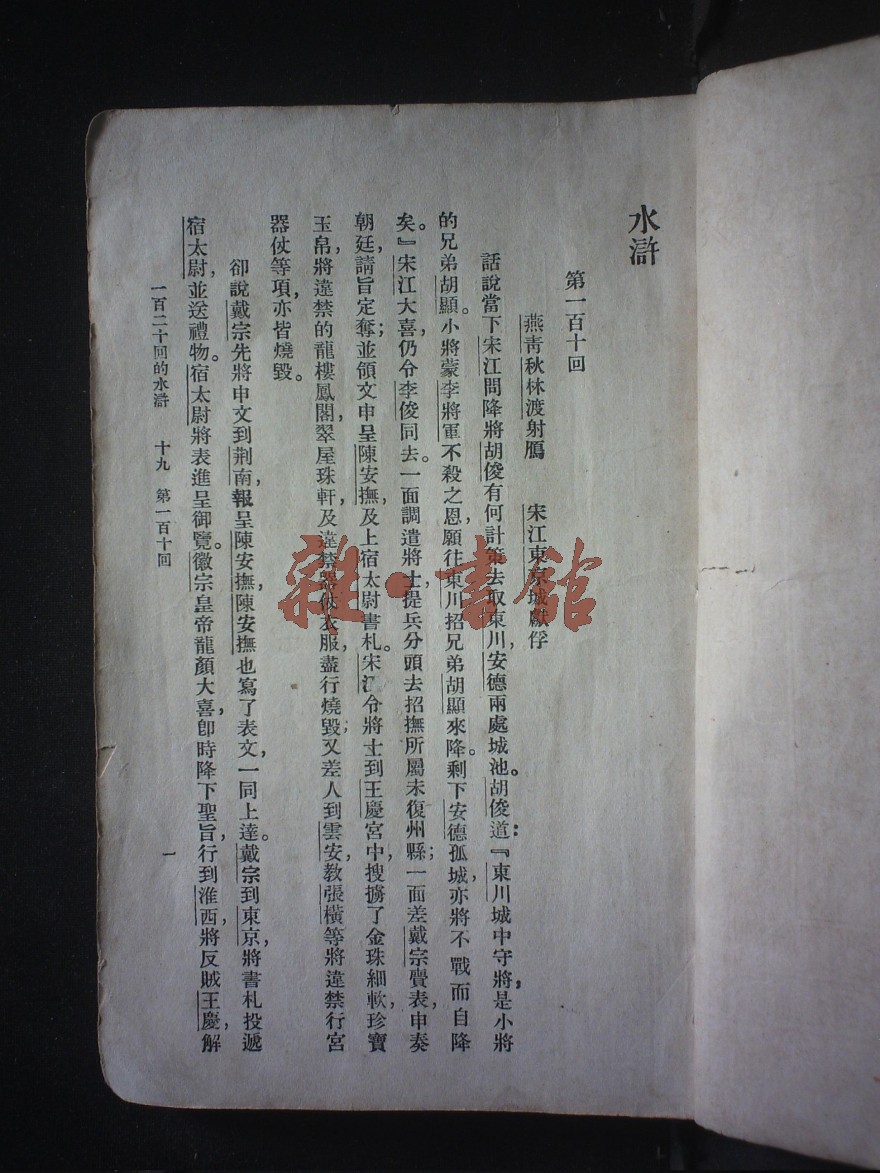 水滸
第一百十回
燕靑秋林渡射鴈　宋江東京城獻俘
話說當下宋江問降將胡俊有何計策去取東川，安德兩處城池。胡俊道：『東川城中守將，是小將
的兄弟胡顯。小將蒙李將軍不殺之恩，願往東川招兄弟胡顯來降。剩下安德孤城，亦將不戰而自降
矣。』宋江大喜，仍令李俊同去。一面調遣將士，提兵分頭去招撫所屬未復州縣；一面差戴宗賫表，申奏
朝廷，請旨定奪；並領文申呈陳安撫，及上宿太尉書札。宋江令將士到王慶宮中，搜擄了金珠細軟，珍寶
玉帛，將違禁的龍樓鳳閣，翠屋珠軒，及違禁器仗衣服，盡行燒毀；又差人到雲安，教張橫等將違禁行宮
器仗等項，亦皆燒毀。
卻說戴宗先將申文到荆南，報呈陳安撫，陳安撫也寫了表文，一同上達。戴宗到東京，將書札投遞
宿太尉，並送禮物。宿太尉將表進呈御覽。徽宗皇帝龍顏大喜，卽時降下聖旨，行到淮西，將反賊王慶，解
一百二十回的水滸　十九　第一百十回　一
雜·書館